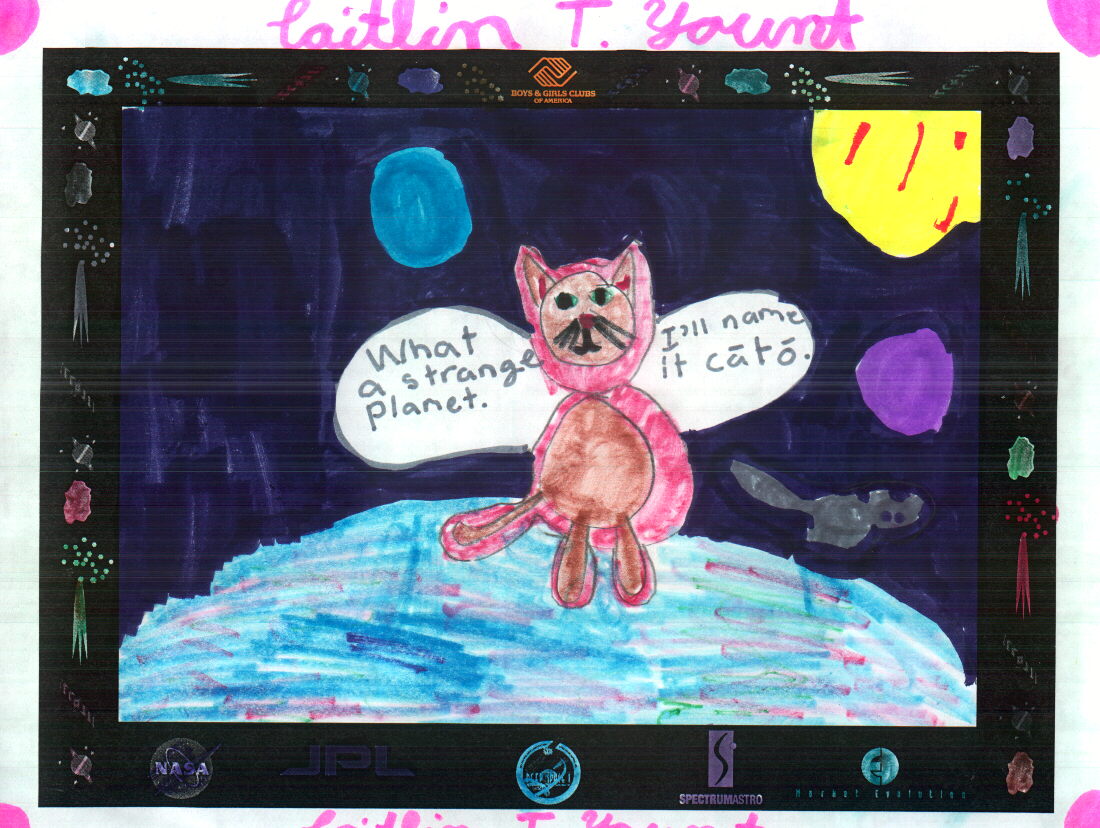 Caitlin T. Yount
BOYS & GIRLS CLUBS
OF AMERICA
What
a strange
planet.
I'll name
it cātō.
NASA
JPL
DEEP SPACE 1
SPECTRUMASTRO
Market Evolution
Caitlin T. Yount